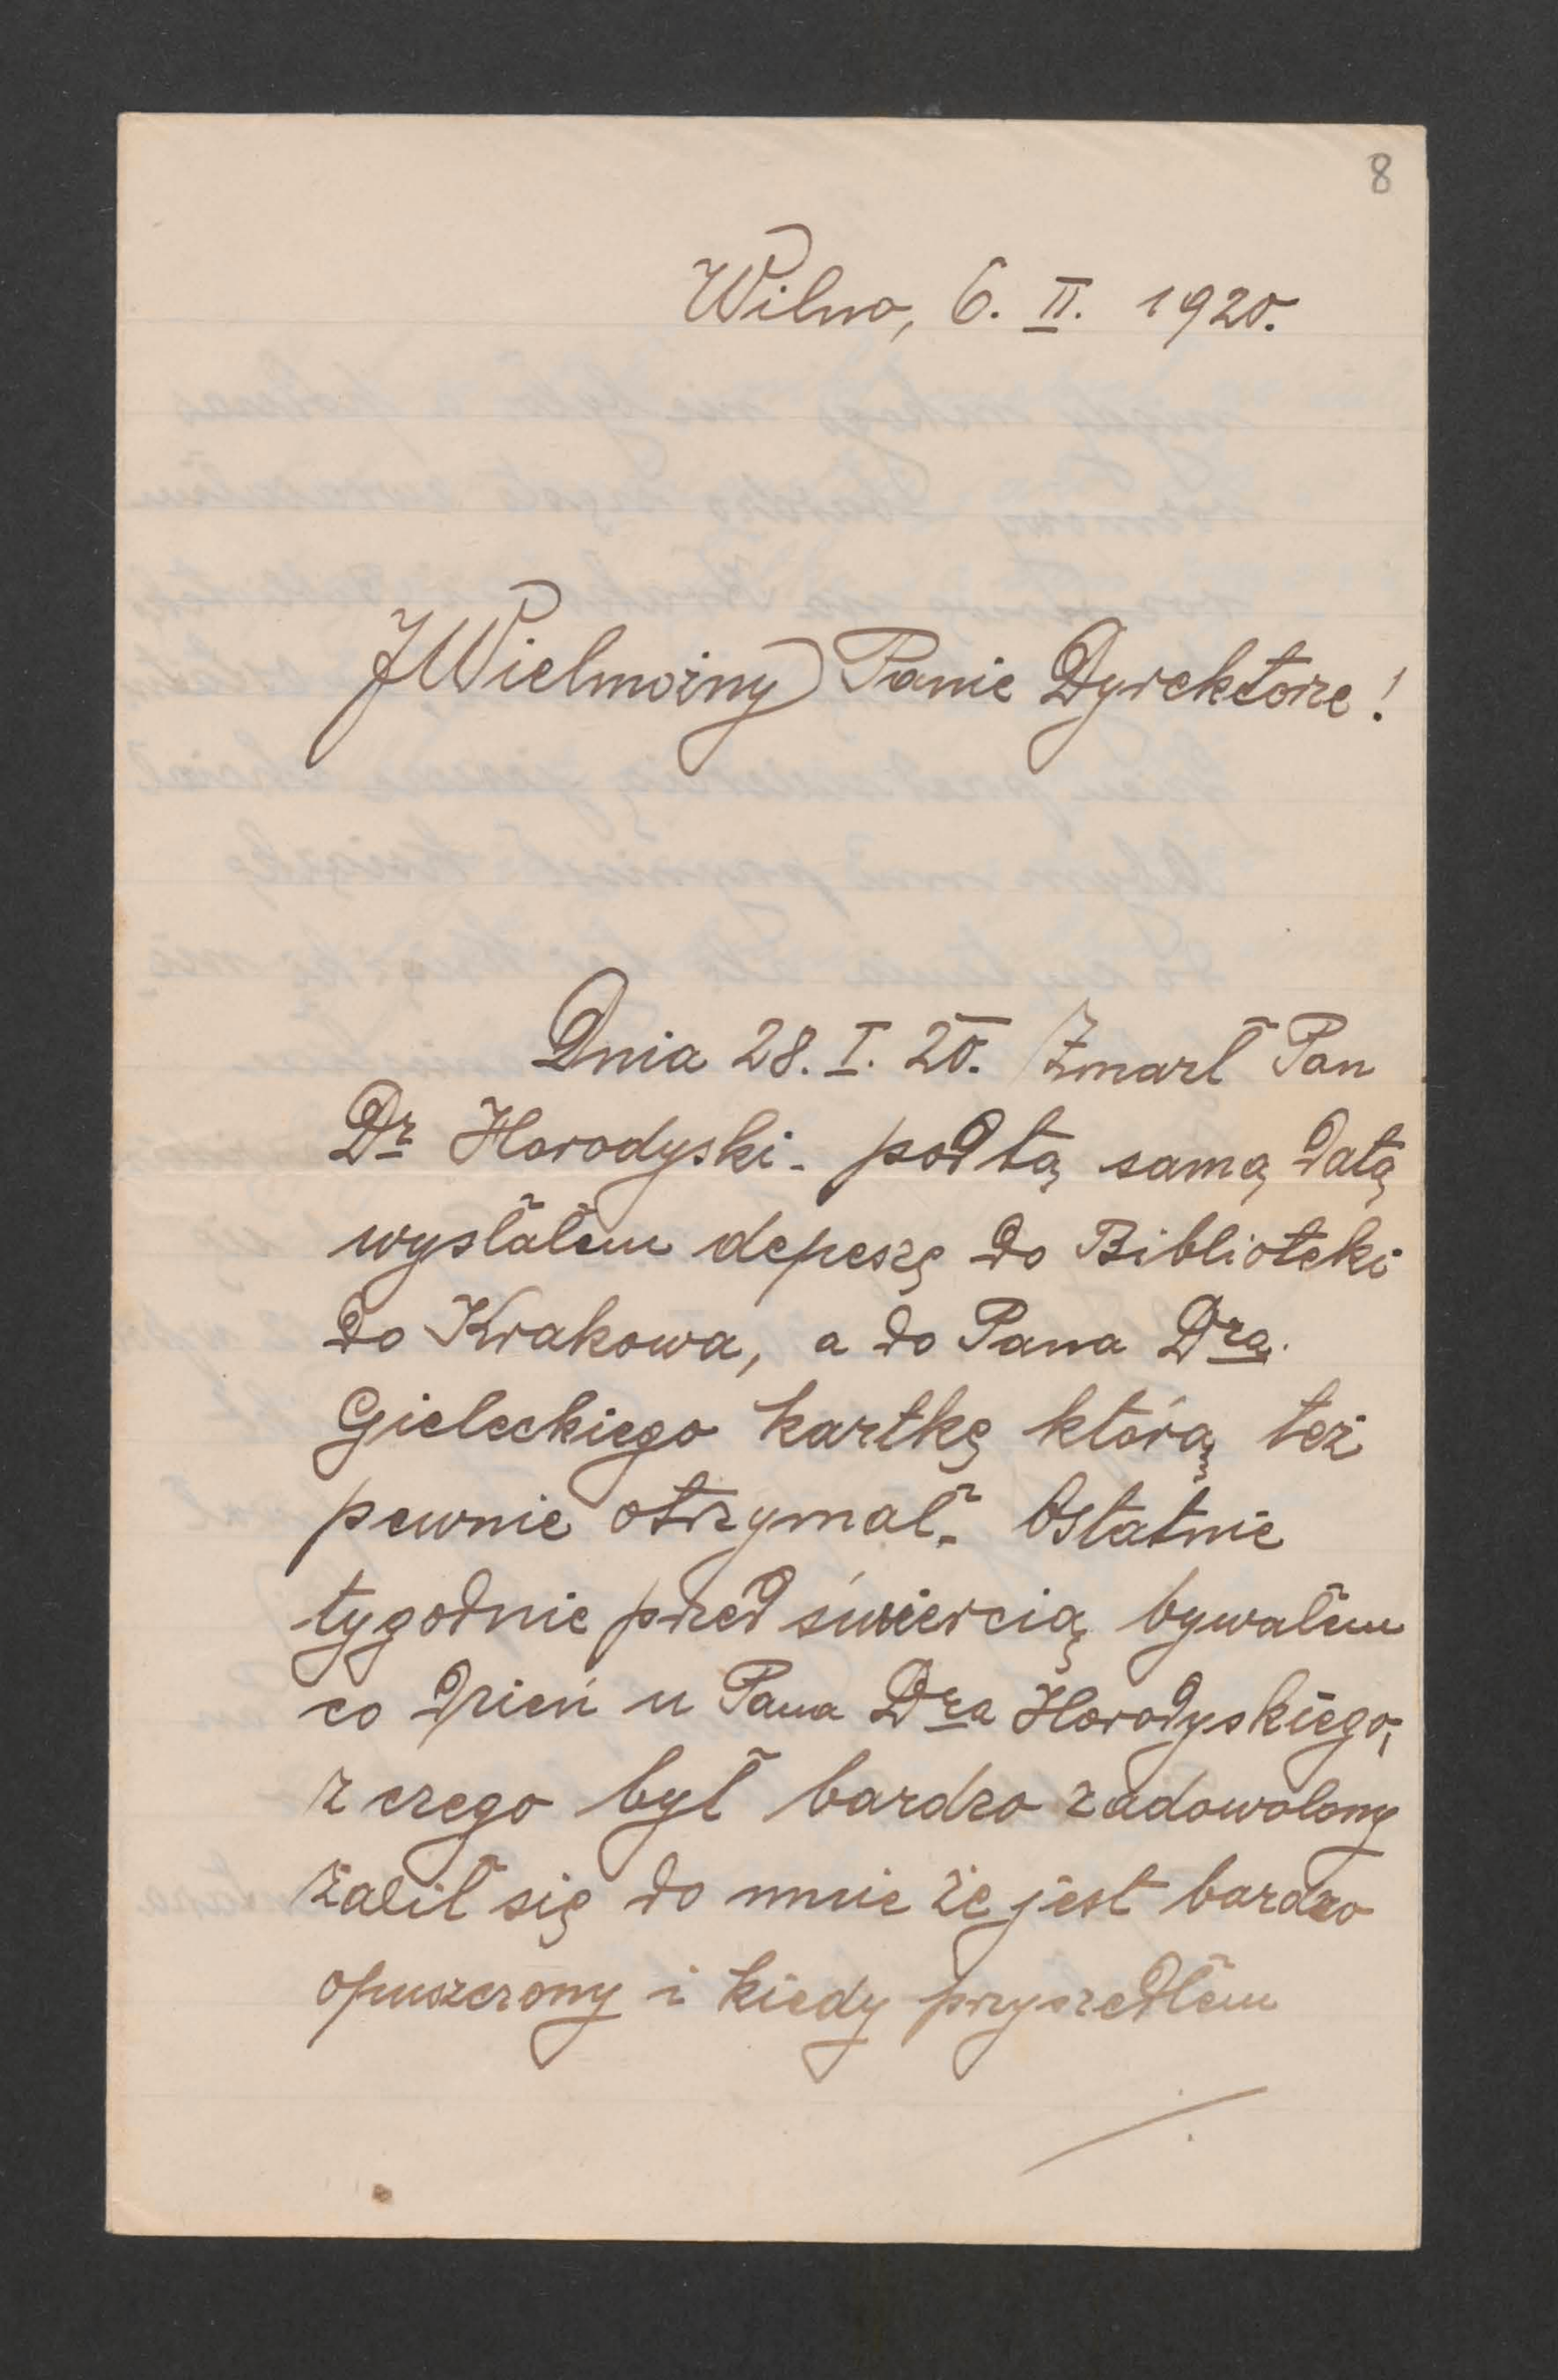 8
Wilno, 6. II. 1920.
JWielmożny Panie Dyrektorze!
Dnia 28. I. 20. Zmarł Pan
Dr Horodyski - pod tą samą datą
wysłałem depeszę do Biblioteki
do Krakowa, a do Pana Dra.
Gieleckiego kartkę którą też
pewnie otrzymał. Ostatnie
tygodnie przed śmiercią bywałem
co dzień u Pana Dra Horodyskiego,
z czego był bardzo zadowolony
żalił się do mnie że jest bardzo
opuszczony i kiedy przyszedłem